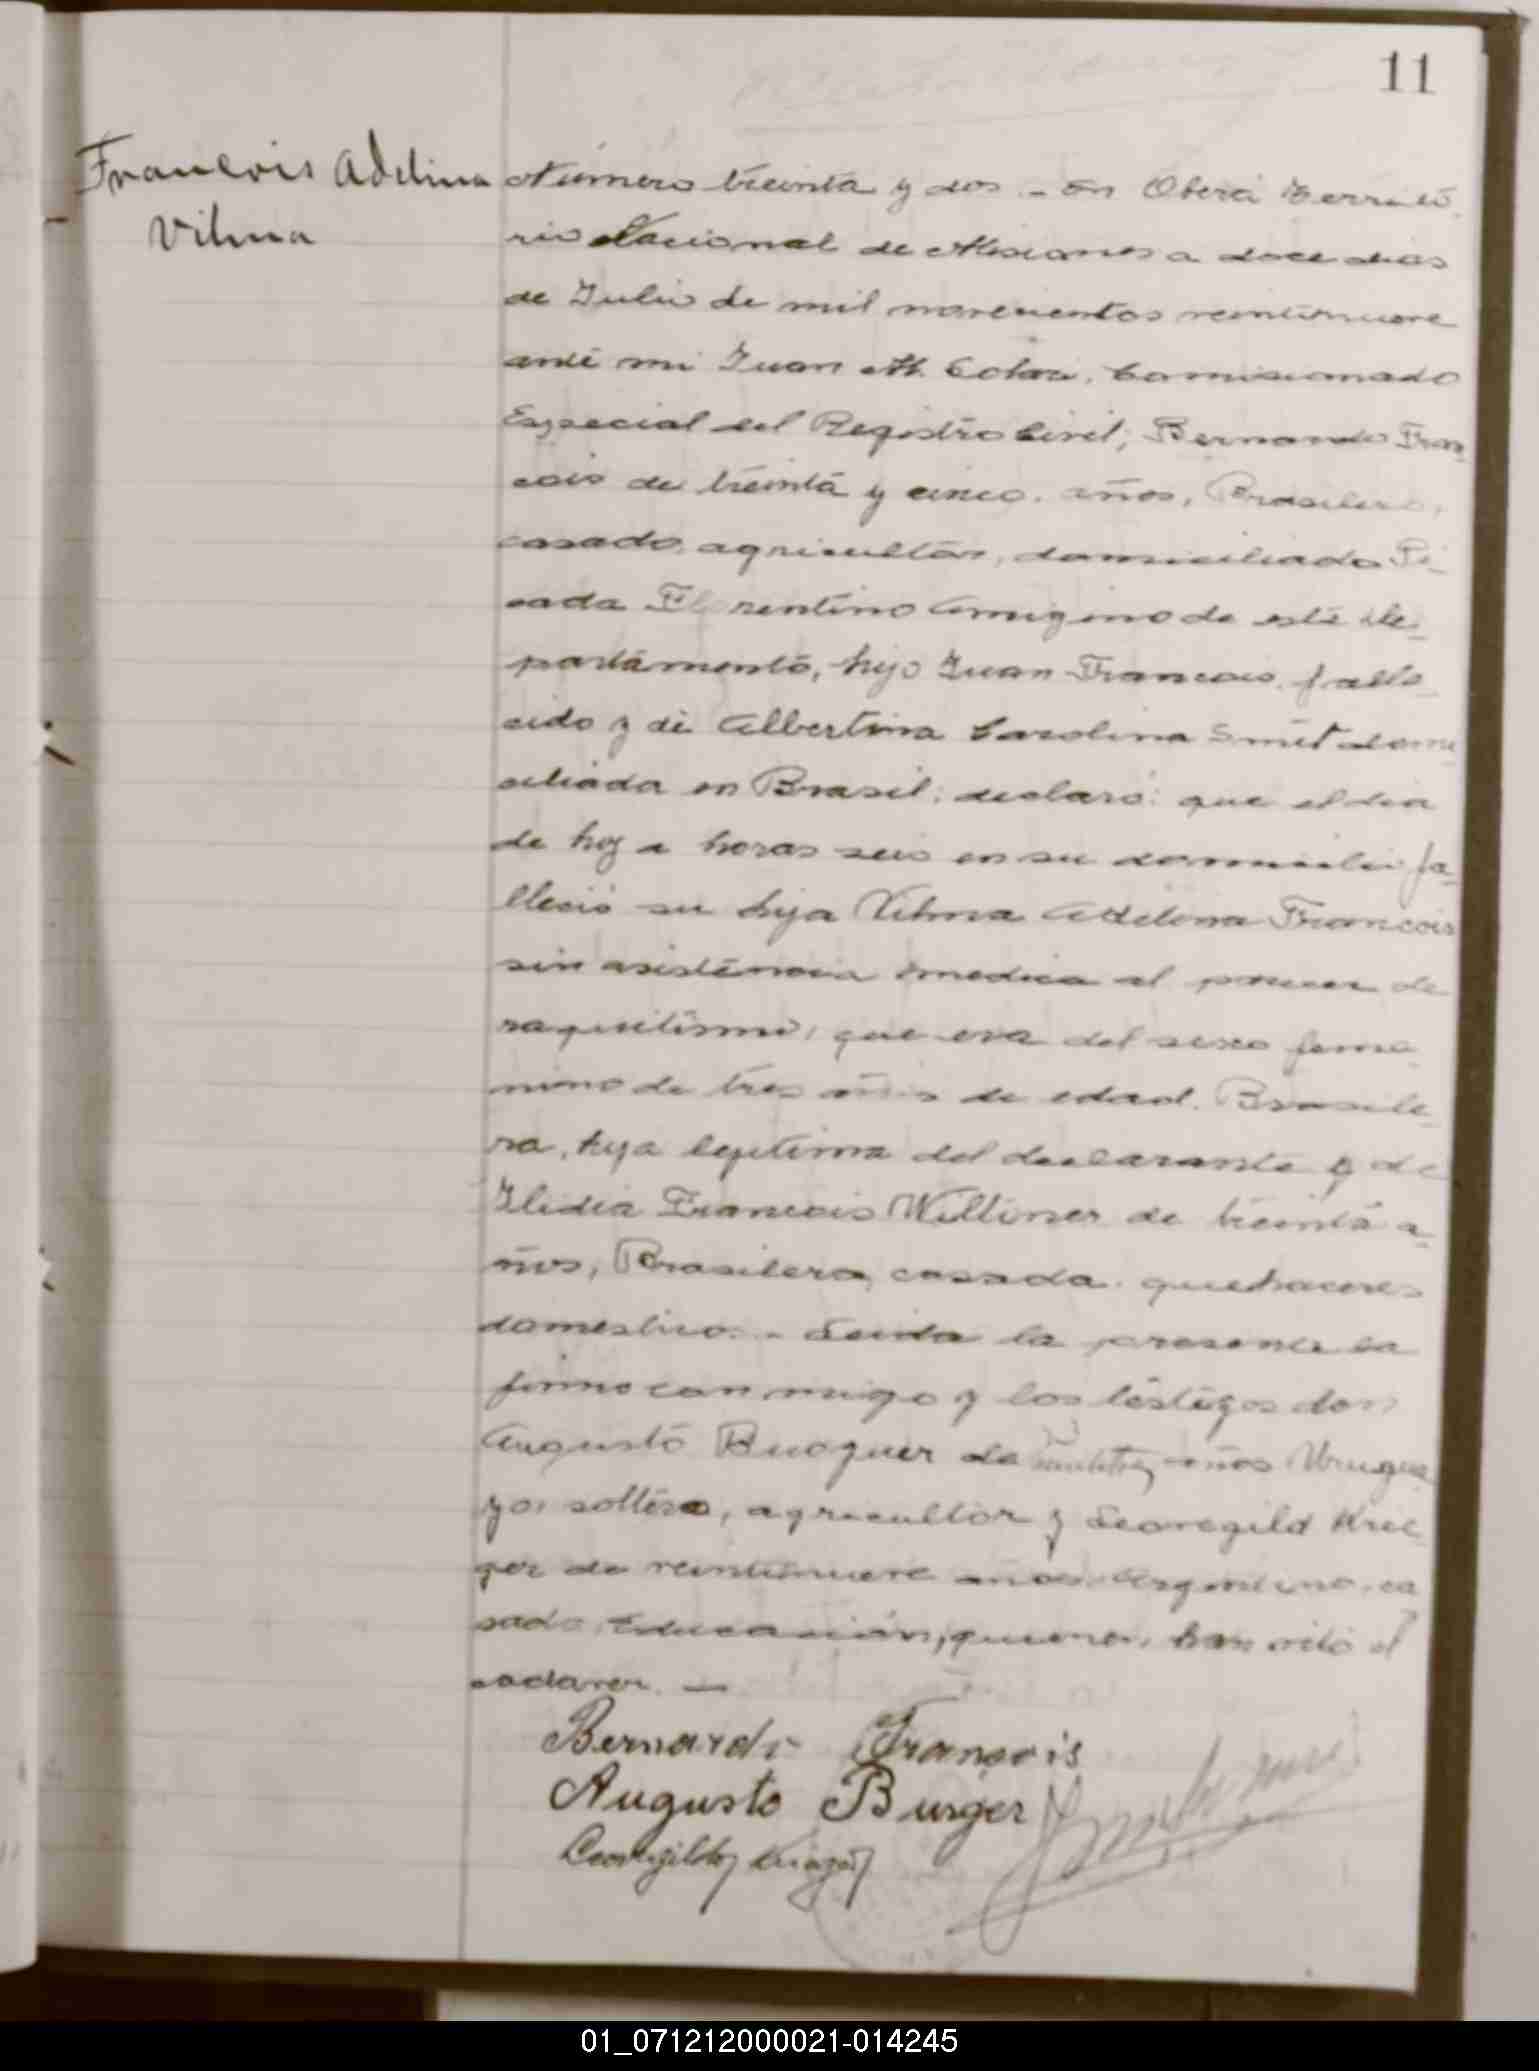 11
Francois Adelina
Vilma
Número treinta y dos - En Oberá Territo
rio Nacional de Misiones a doce dias
de Julio de mil novecientos veintinueve
ante mi Juan M. Comisionado
Especial del Registro Civil; Bernardo Fran
cois de treinta y cinco años, Brasilero,
casado, agricultor, domiciliado Pi-
cada Florentino Amigino de este De-
partamento, hijo Juan Francois, falle-
cido y de Albertina Carolina Smit domi
ciliada en Brasil; declaró: que el dia
de hoy a horas seis en su domicilio fa-
lleció su hija Vilma Adelina Francois
sin asistencia medica al parecer de
raquitismo, que era del sexo feme
nino de tres años de edad. Brasile-
ra, hija legitima del declarante y de
Ilidia Francois Wiltiner de treinta a-
ños, Brasilera, casada, quehaceres
domestico. - Leida la presente la
firmo con migo y los testigos don
Augusto Buoguer de años Urugua
yo, soltero, agricultor y Leovegild Krie
ger de veintinueve años Argentino, ca
sado, Educación, quienes, han visto el
cadaver. —
Bernardo François
Augusto Burger
01_071212000021-014245